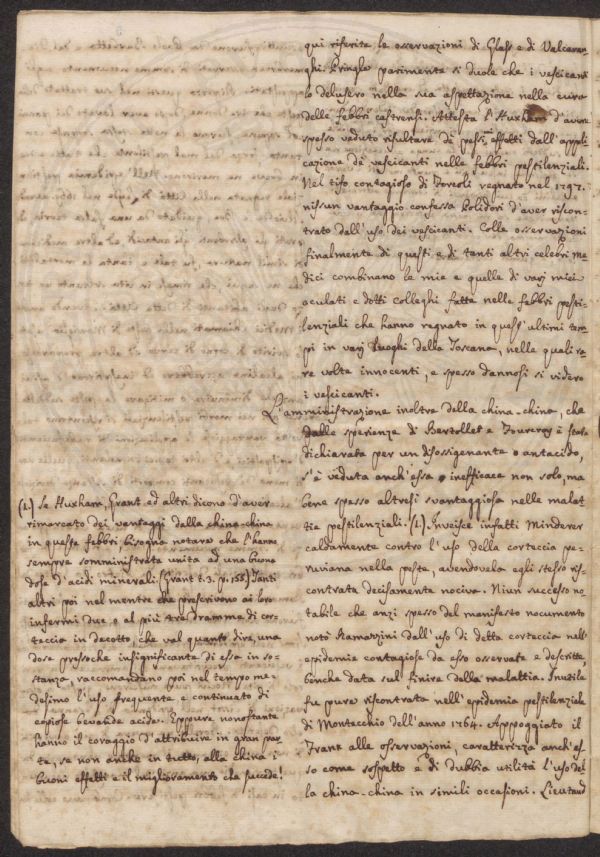 qui riferite le osservazioni di Glass e di Valcaren-
ghi. Pringle parimente si duole che i vescicanti
lo delusero nella sua aspettazione nella cura
delle febbri castrensi. Attesta l'Huxham d'aver
spesso veduto risultare de' pessimi effetti dall'appli-
cazione de' vescicanti nelle febbri pestilenziali.
Nel tifo contagioso di regnato nel 1797.
nissun vantaggio confessa Polidori d'aver riscon-
trato dall'uso dei vescicanti. Colle osservazioni
finalmente di questi e di tanti altri celebri me
dici combinano le mie e quelle di varj miei
oculati e dotti colleghi fatte nelle febbri pesti-
lenziali che hanno regnato in quest'ultimi tem-
pi in varj luoghi della Toscana, nelle quali ra
re volte innocenti, e spesso dannosi si videro
i vescicanti.
L'amministrazione inoltre della china-china, che
dalle sperienze di Bertollet e Fourcroy è stata
dichiarata per un disossigenante o antacido,
s'è veduta anch'essa inefficace non solo, ma
bene spesso altresì svantaggiosa nelle malat
tie pestilenziali. (1.) Inveisce infatti Minderer
caldamente contro l'uso della corteccia pe-
ruviana nella peste, avendovela egli stesso ris-
contrata decisamente nociva. Niun successo no
tabile che anzi spesso del manifesto nocumento
notò Ramazzini dall'uso di detta corteccia nell'
epidemie contagiose da esso osservate e descritte,
benche data sul finire della malattia. Inutile
fu pure riscontrata nell'epidemia pestilenziale
di Montecchio dell'anno 1764. Apppoggiato il
Frank alle osservazioni, caratterizza anch'es
so come sospetto e di dubbia utilità l'uso del
la china-china in simili occasioni. Lieutaud
(1.) Se Huxham, Grant ed altri dicono d'aver
rimarcato dei vantaggi dalla china-china
in queste febbri bisogna notare che l'hanno
sempre somministrata unita ad una buona
dose d'acidi minerali. (Grant t.3. p. 158) Tanti
altri poi nel mentre che prescrivono ai loro
infermi due o al più tre dramme di cor-
teccia in decotto, che val quanto dire, una
dose pressoche insignificante di essa in so-
stanza, raccomandano poi nel tempo me-
desimo l'uso frequente e continuato di
copiose bevande acide. Eppure nonostante
hanno il coraggio d'attribuire in gran par
te, se non anche in tutto, alla china i
buoni effetti e il miglioramento che succede!